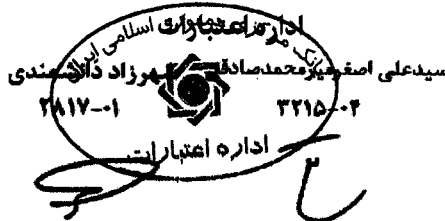 اداره اعتبارات
بانک مرکزی جمهوری اسلامی ایران
سیدعلی اصغر میرمحمدصادقی شهرزاد دانشمندی
۳۲۱۵-۰۲ ۲۸۱۷-۰۱
اداره اعتبارات